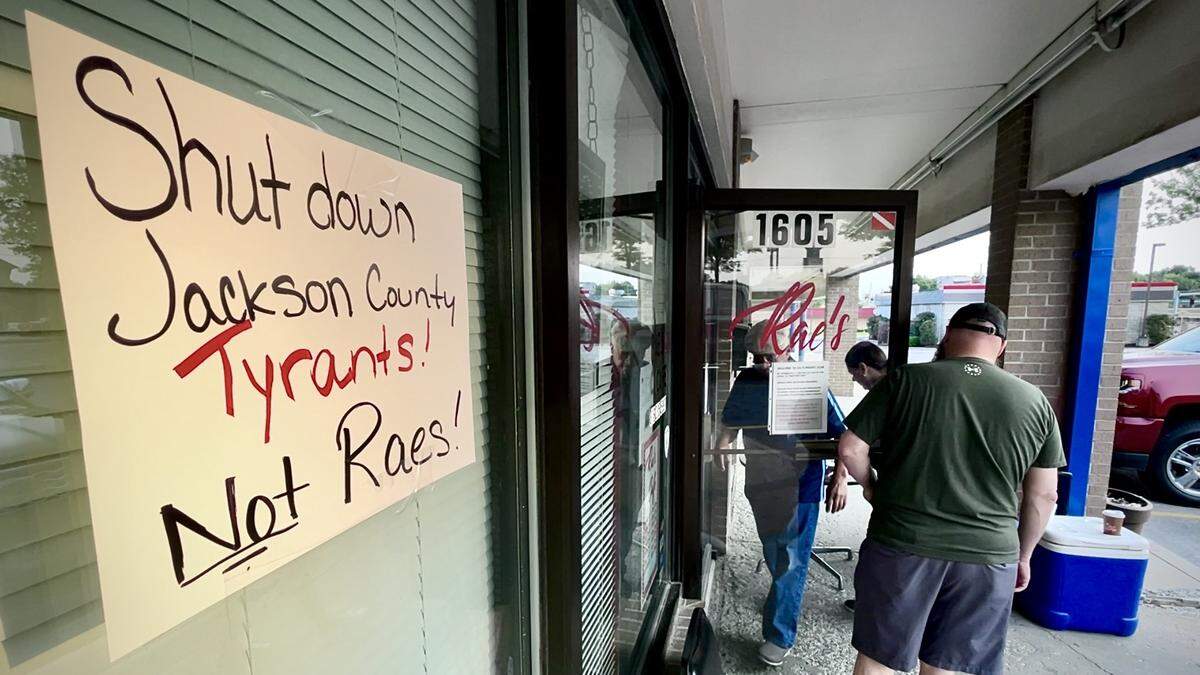 Shut down
Jackson County
Tyrants!
Not Raes!
1605
Rae's